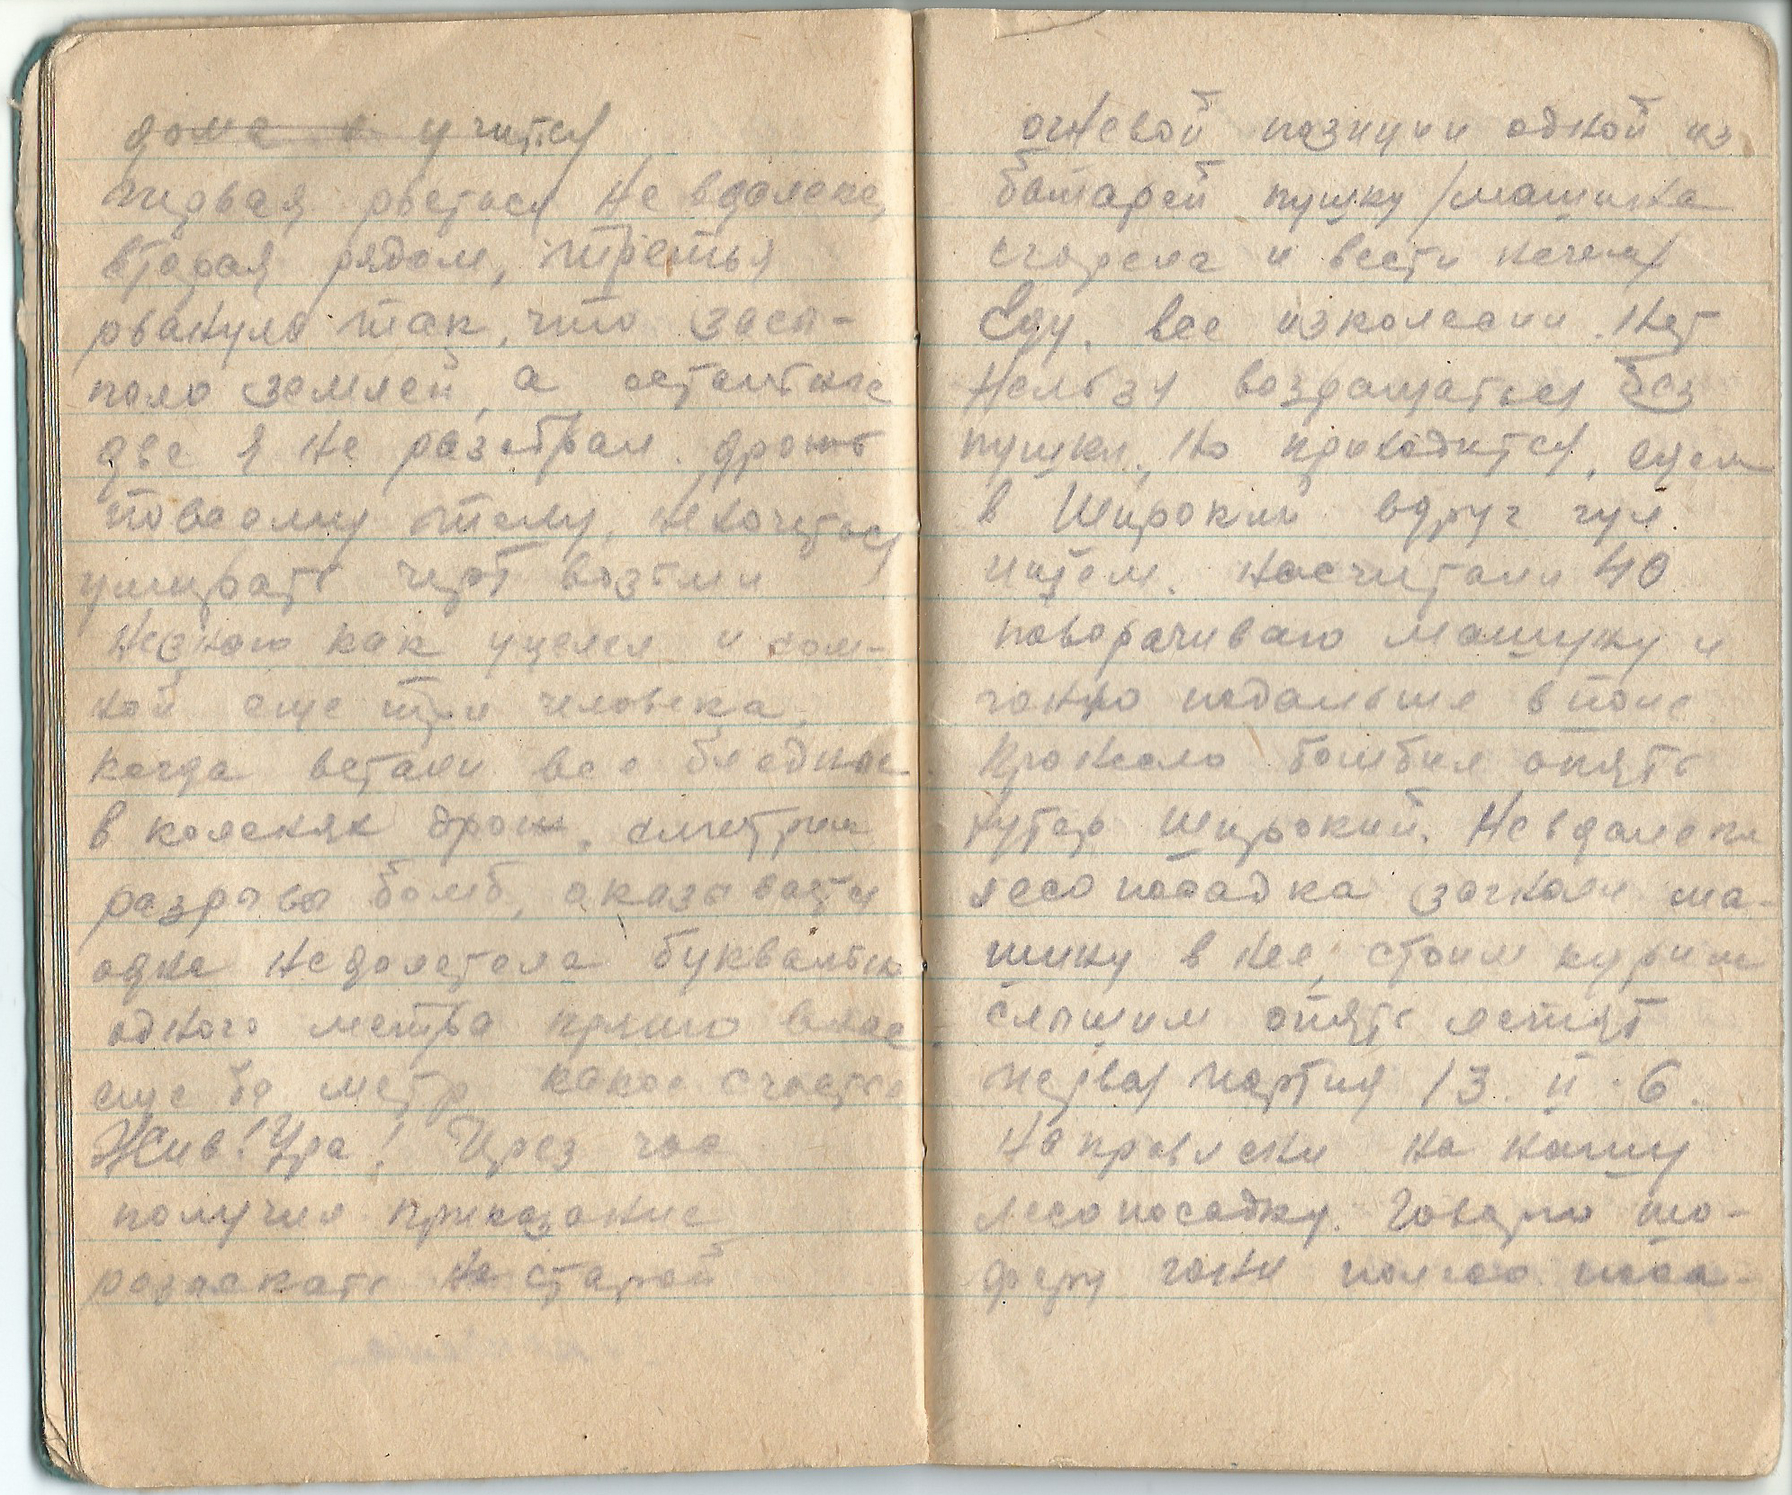 дома и учится
первая рветься не вдалеке,
вторая рядом, третья
рванула так, что засы-
пало землей, а остальные
две я не разобрал. дрожь
по всему телу, нехочеться
умирать черт возьми
Незнаю как уцелел и сом-
ной еще три человека.
когда встали все бледные
в коленях дрож, смотрим
разрывы бомб, оказывается
одна недолетела буквально
одного метра прямо в нас
еще бы метр какое счастье
Жив! Ура! Через час
получил приказание
разыскать на старой
огневой позиции одной из
батарей пушку /машина
сгорела и вести нечем/
Еду. все изколесили. Нет
Нельзя возвращаться без
пушки, но приходится, едем
в Широкий вдруг гул
ищем. насчитали 40
поворачиваю машину и
гоню подальше в поле
Пронесло бомбил опять
хутор Широкий. Невдалеке
лесопосадка загнали ма-
шину в нее, стоим курим
слышим опять летят
первая партия 13. II - 6.
Направлени на нашу
лесопосадку. Говорю шо-
феру гони полтоо поса-